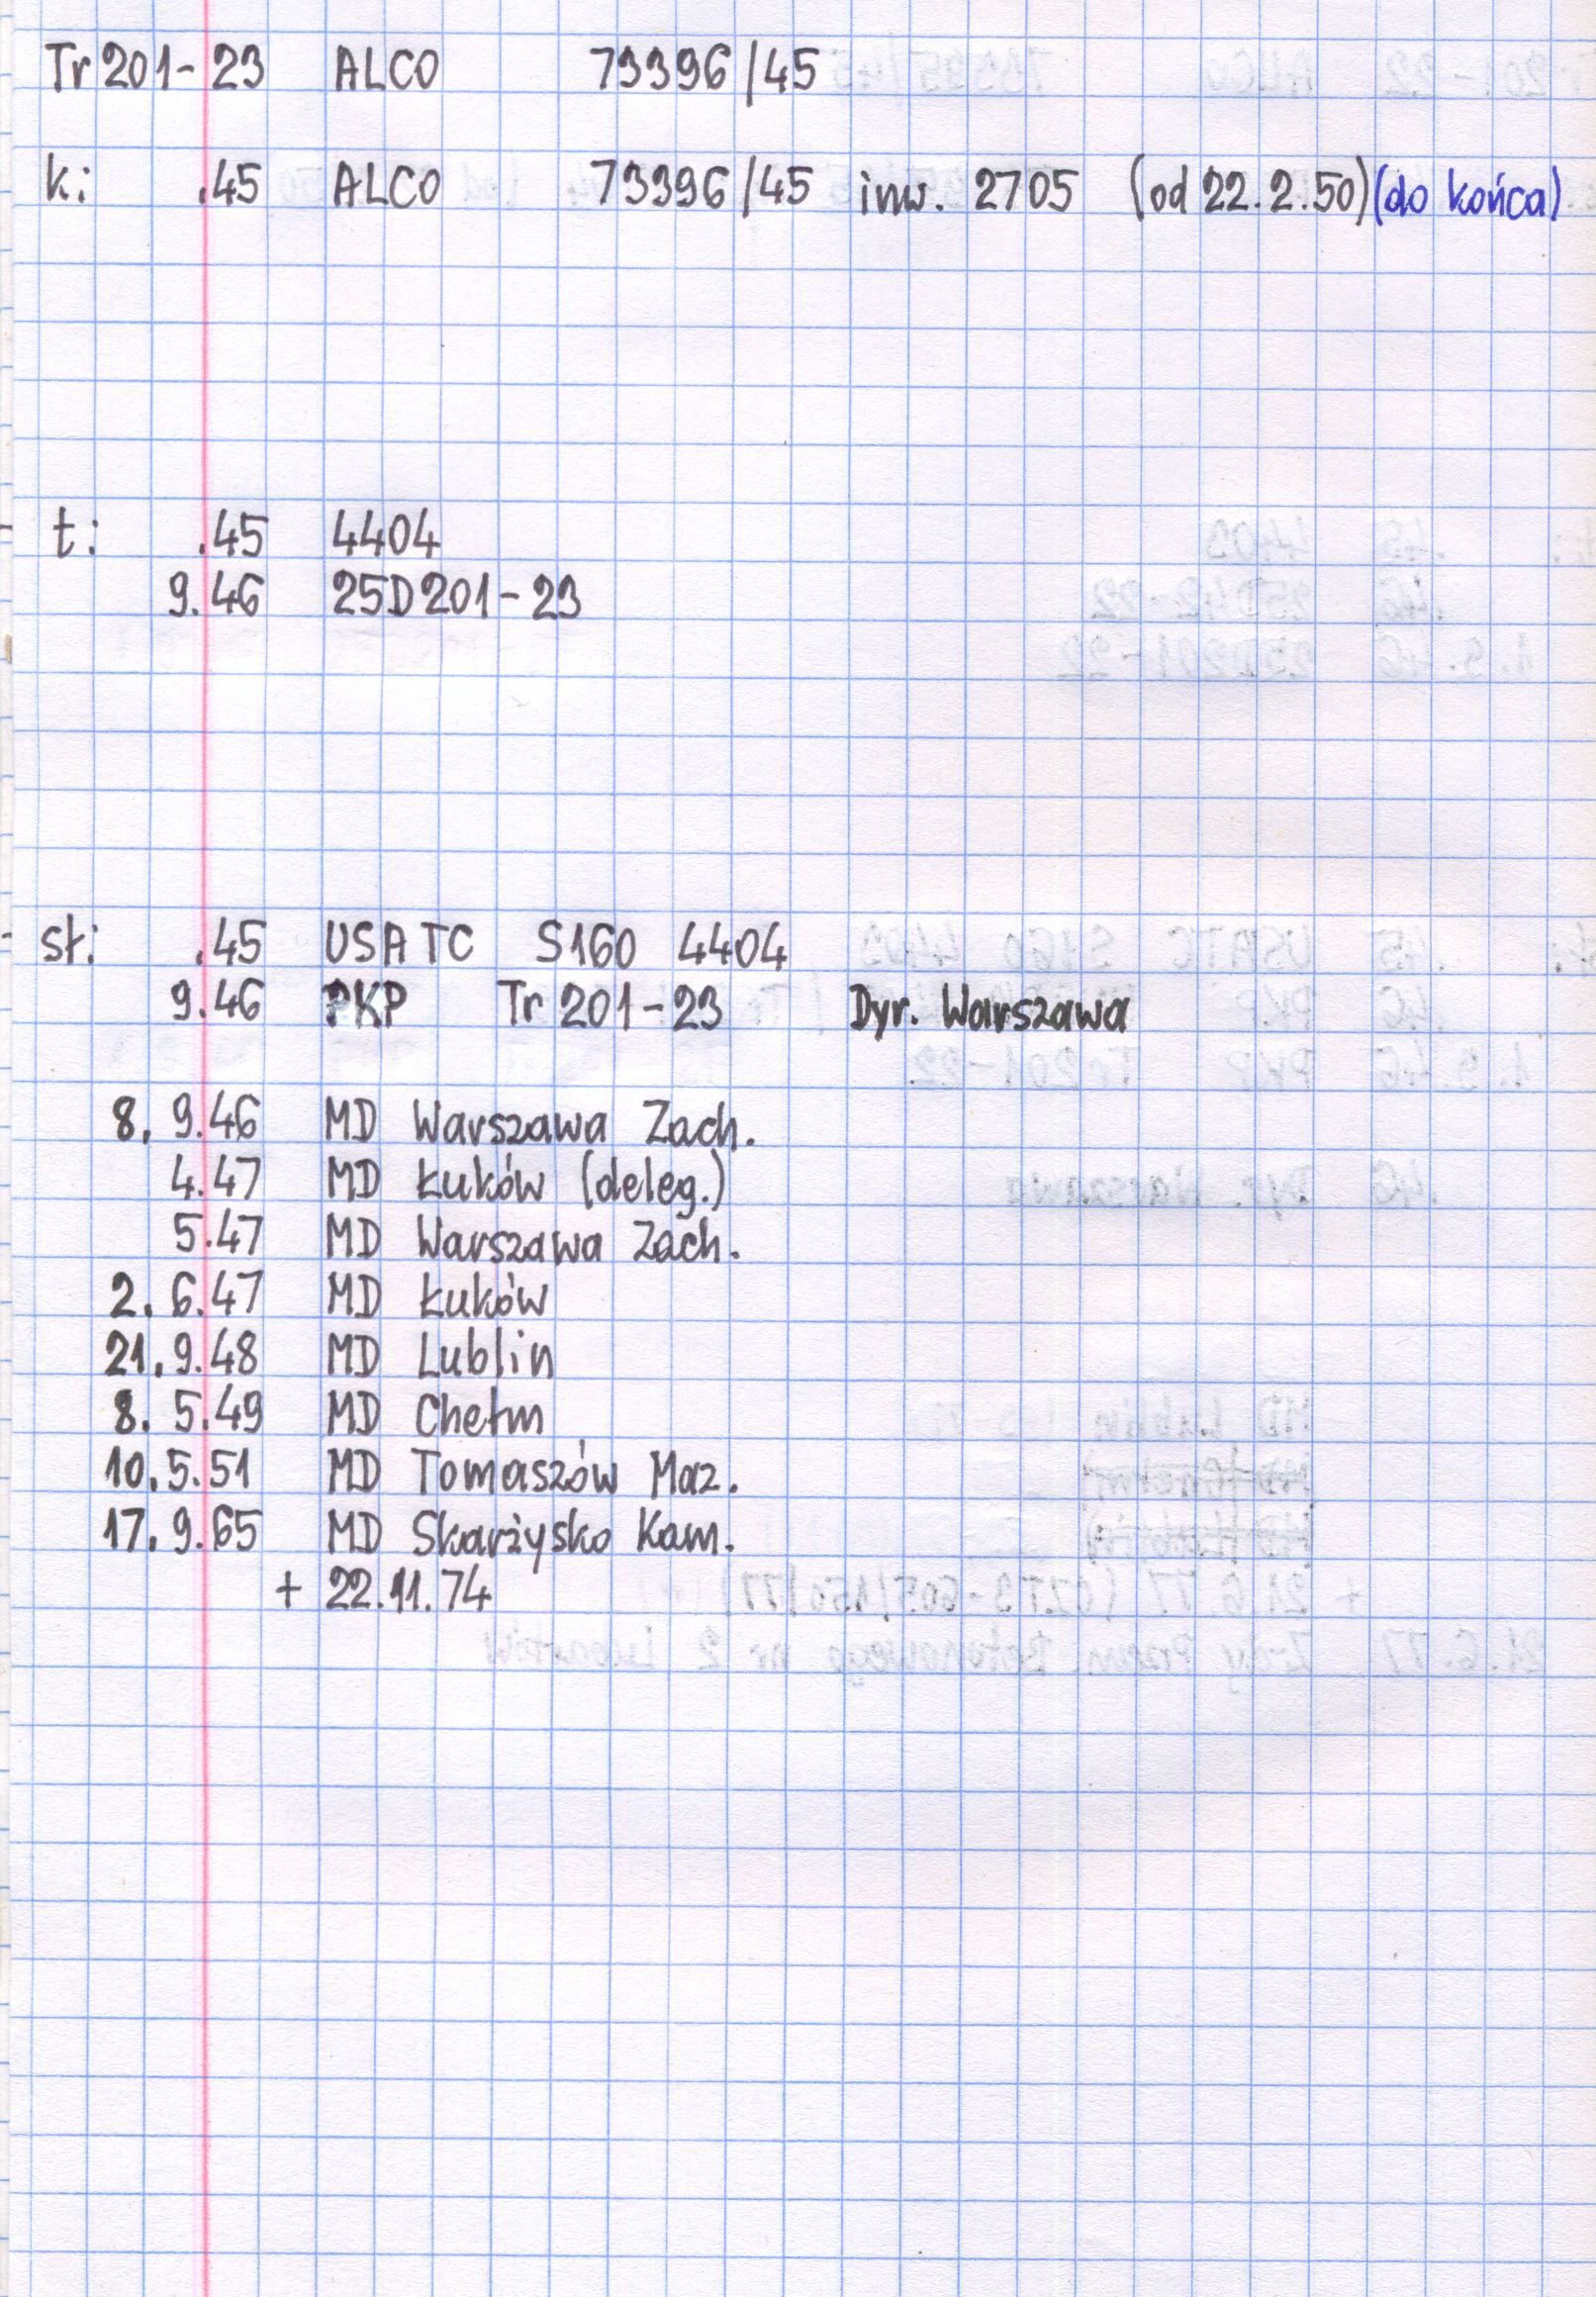 Tr 201-23 ALCO 73396/45
k: .45 ALCO 73396/45 inw. 2705 (od 22.2.50) (do końca)
t: .45 4404
9.46 25D201-23
sł: .45 USATC S160 4404
9.46 PKP Tr 201-23 Dyr. Warszawa
8. 9.46 MD Warszawa Zach.
4.47 MD Łuków (deleg.)
5.47 MD Warszawa Zach.
2. 6.47 MD Łuków
21. 9.48 MD Lublin
8. 5.49 MD Chełm
10. 5.51 MD Tomaszów Maz.
17. 9.65 MD Skarżysko Kam.
+ 22.11.74